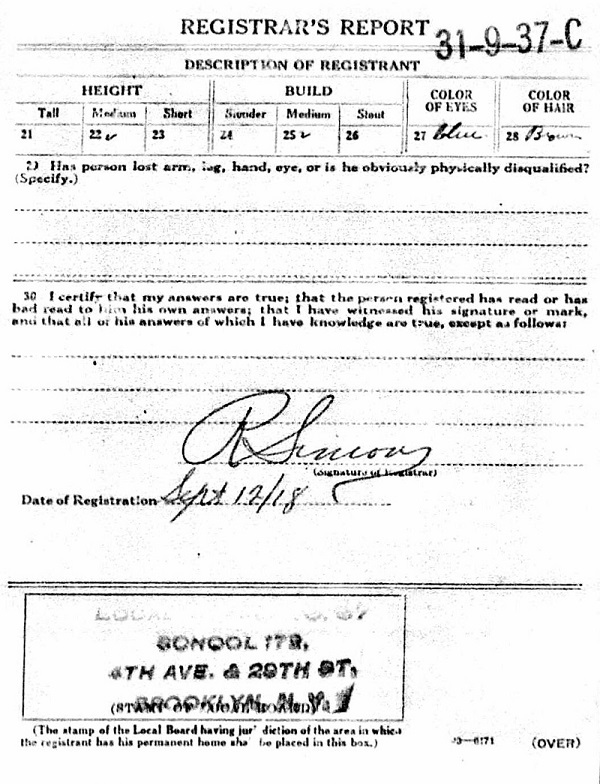 REGISTRAR'S REPORT
31-9-37-C
DESCRIPTION OF REGISTRANT
HEIGHT BUILD COLOR OF EYES COLOR OF HAIR
Tall Medium Short Slender Medium Stout
21 22 ✓ 23 24 25 ✓ 26 27 Blue 28 Brown
29 Has person lost arm, leg, hand, eye, or is he obviously physically disqualified?
(Specify.)
30 I certify that my answers are true; that the person registered has read or has
had read to him his own answers; that I have witnessed his signature or mark,
and that all of his answers of which I have knowledge are true, except as follows:
R Simons
(Signature of Registrar)
Date of Registration Sept 12/18
LOCAL
SCHOOL 172,
4TH AVE. & 29TH ST,
BROOKLYN, N. Y.
(STAMP OF LOCAL BOARD)
(The stamp of the Local Board having jurisdiction of the area in which
the registrant has his permanent home shall be placed in this box.)
03-6171 (OVER)